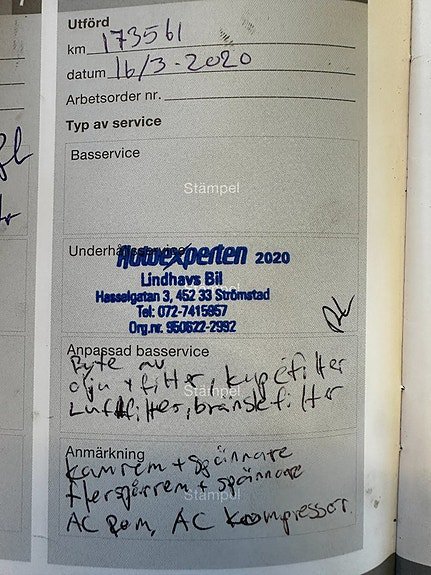 Utförd
km 173561
datum 16/3-2020
Arbetsorder nr.
Typ av service
Basservice
Stämpel
Underhållsservice
Autoexperten 2020
Lindhavs Bil
Hasselgatan 3, 452 33 Strömstad
Tel: 072-7415957
Org.nr. 950622-2992
Anpassad basservice
Byte av
olja + filter, kupéfilter
Stämpel
Luftfilter, bränslefilter
Anmärkning
Kamrem + spännare
flerspårrem + spännare
Stämpel
AC rem, AC kompressor.